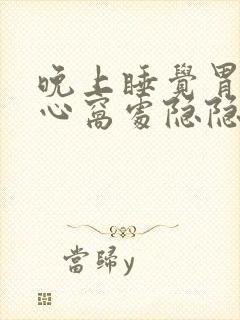 晚上睡覺胃
心窩處隐隐
當歸y